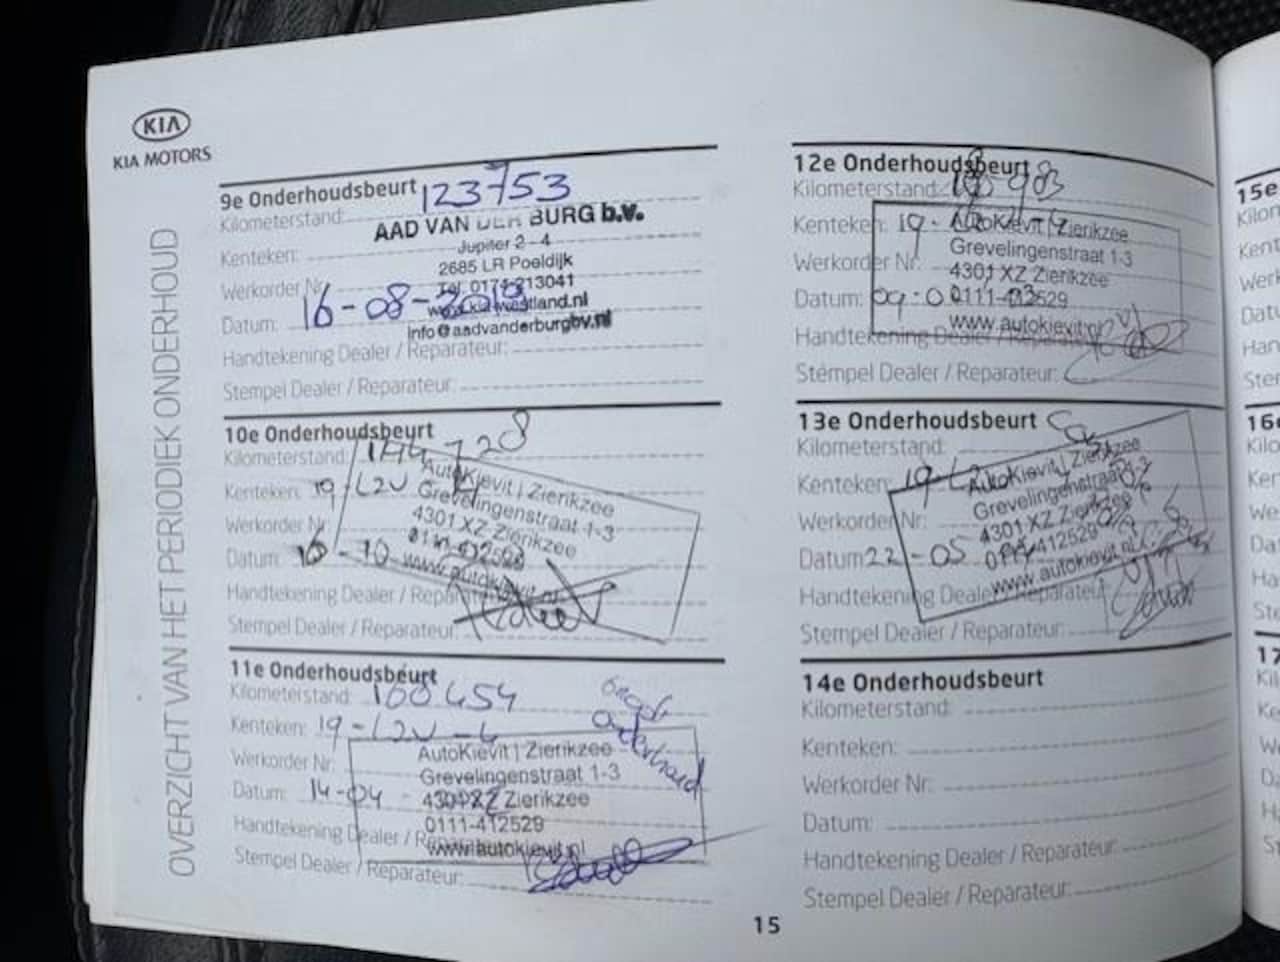 KIA
KIA MOTORS
OVERZICHT VAN HET PERIODIEK ONDERHOUD
9e Onderhoudsbeurt
Kilometerstand: 123753
AAD VAN DER BURG b.v.
Kenteken:
Jupiter 2 - 4
2685 LR Poeldijk
Werkorder Nr.:
Tel. 0174-213041
Datum: 16-08-2018
www.kia-westland.nl
info@aadvanderburgbv.nl
Handtekening Dealer / Reparateur:
Stempel Dealer / Reparateur:
10e Onderhoudsbeurt
Kilometerstand: 728
AutoKievit | Zierikzee
Kenteken: 19-L2V
Grevelingenstraat 1-3
Werkorder Nr.
4301 XZ Zierikzee
0111-412529
Datum: -10-
www.autokievit.nl
Handtekening Dealer / Reparateur:
Stempel Dealer / Reparateur:
11e Onderhoudsbeurt
Kilometerstand: 160454
onderhoud
Kenteken: 19-L2V-4
AutoKievit | Zierikzee
Werkorder Nr.
Grevelingenstraat 1-3
Datum: 14-04-
4301 XZ Zierikzee
0111-412529
Handtekening Dealer / Reparateur:
www.autokievit.nl
Stempel Dealer / Reparateur:
12e Onderhoudsbeurt
Kilometerstand: 983
Kenteken: 19-
AutoKievit | Zierikzee
Grevelingenstraat 1-3
Werkorder Nr.
4301 XZ Zierikzee
Datum: 09-0
0111-412529
www.autokievit.nl
Handtekening Dealer / Reparateur:
Stempel Dealer / Reparateur:
13e Onderhoudsbeurt
Kilometerstand:
AutoKievit | Zierikzee
Kenteken: 19-L2
Grevelingenstraat 1-3
Werkorder Nr:
4301 XZ Zierikzee
Datum 22-05
0111-412529
www.autokievit.nl
Handtekening Dealer / Reparateur:
Stempel Dealer / Reparateur:
14e Onderhoudsbeurt
Kilometerstand:
Kenteken:
Werkorder Nr.:
Datum:
Handtekening Dealer / Reparateur:
Stempel Dealer / Reparateur:
15
15e
16e
17